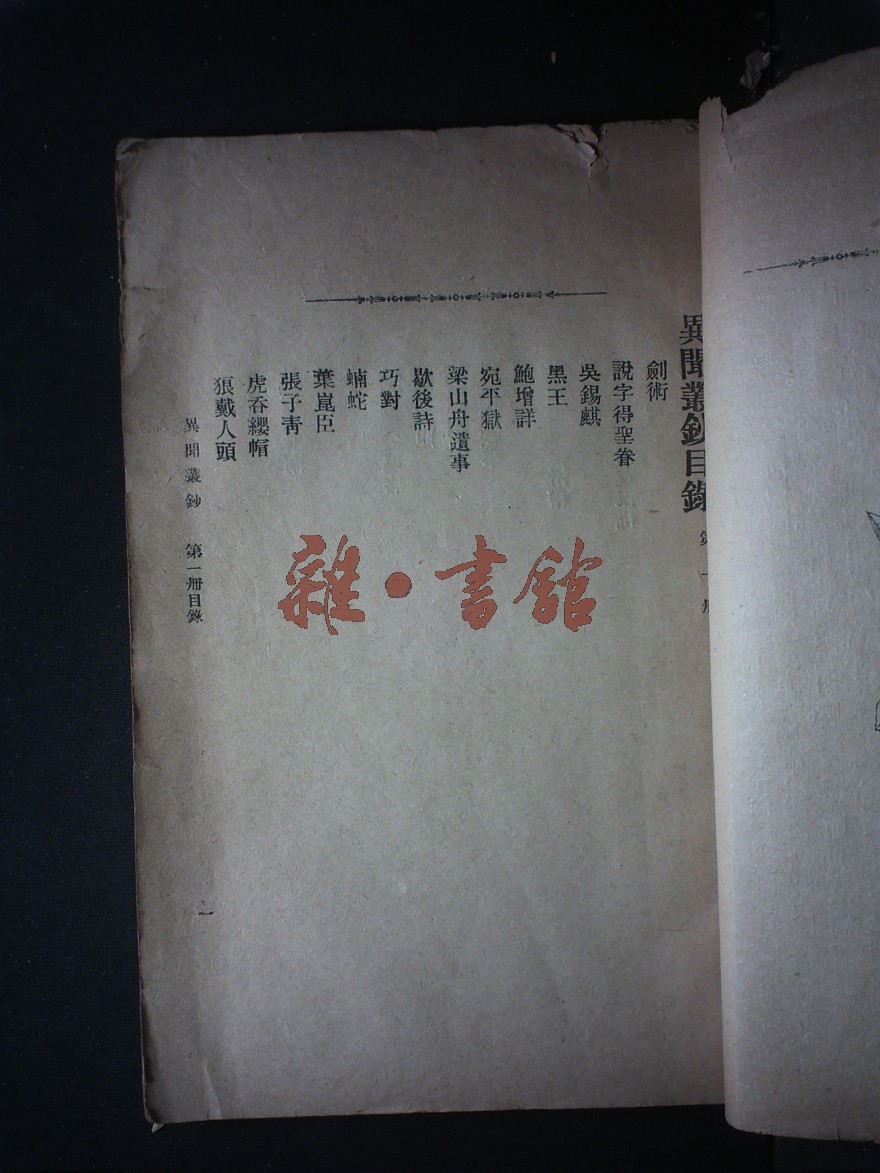 異聞叢鈔目錄 第一册
劍術
說字得聖眷
吳錫麒
黑王
鮑增詳
宛平獄
梁山舟遺事
歇後詩
巧對
蝻蛇
葉崑臣
張子靑
虎吞纓帽
狼戴人頭
異聞叢鈔 第一册目錄 一
雜·書館